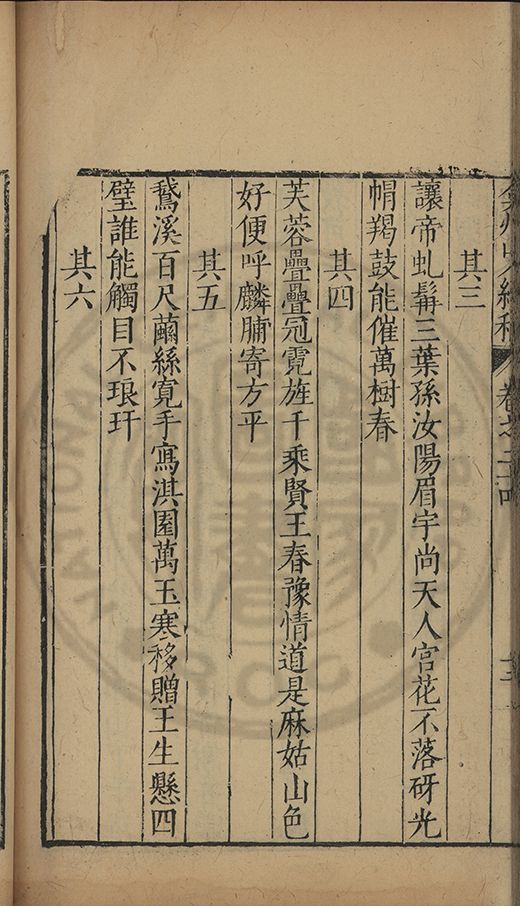 弇州山人續稿 卷之二十四
其三
讓帝虬髯三葉孫汝陽眉宇尚天人宮花不落砑光
帽羯鼓能催萬樹春
其四
芙蓉疊疊冠霓旌千乘賢王春豫情道是麻姑山色
好便呼麟脯寄方平
其五
鵝溪百尺繭絲寬手寫淇園萬玉寒移贈王生懸四
壁誰能觸目不琅玕
其六